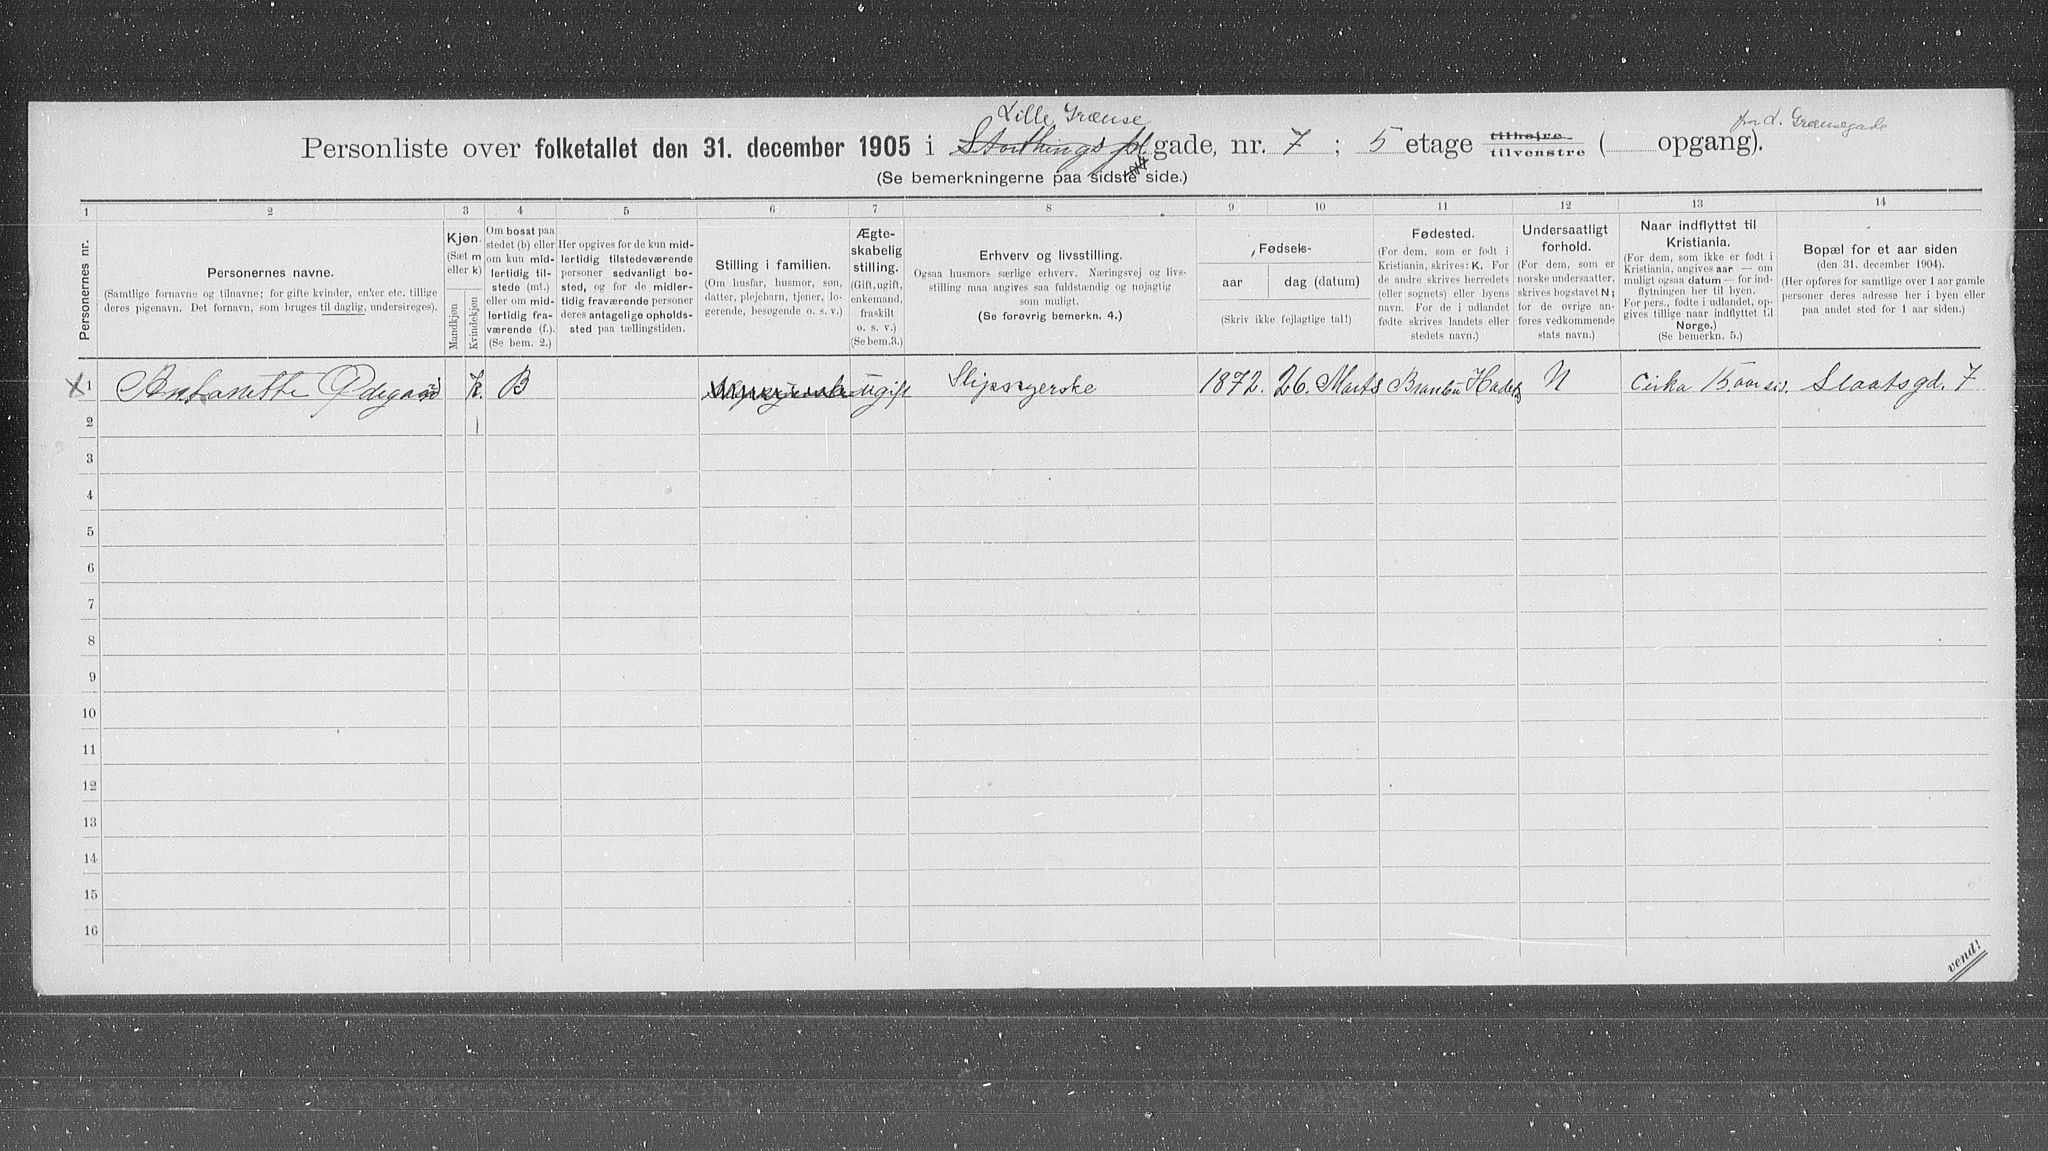 Lille Grænse
for d. Grænsegade
Personliste over folketallet den 31. december 1905 i Storthings pl. gade, nr. 7 ; 5 etage tilhøjre tilvenstre ( opgang).
(Se bemerkningerne paa sidste side.)
1 2 3 4 5 6 7 8 9 10 11 12 13 14
Personernes nr.
Personernes navne.
(Samtlige fornavne og tilnavne; for gifte kvinder, enker etc. tillige
deres pigenavn. Det fornavn, som bruges til daglig, understreges).
Kjøn.
(Sæt m
eller k)
Mandkjøn
Kvindekjøn
Om bosat paa
stedet (b) eller
om kun mid-
lertidig til-
stede (mt.)
eller om mid-
lertidig fra-
værende (f.).
(Se bem. 2.)
Her opgives for de kun mid-
lertidig tilstedeværende
personer sedvanligt bo-
sted, og for de midler-
tidig fraværende personer
deres antagelige opholds-
sted paa tællingstiden.
Stilling i familien.
(Om husfar, husmor, søn,
datter, plejebarn, tjener, lo-
gerende, besøgende o. s. v.)
Ægte-
skabelig
stilling.
(Gift, ugift,
enkemand,
fraskilt
o. s. v.)
(Se bem.3.)
Erhverv og livsstilling.
Ogsaa husmors særlige erhverv. Næringsvej og livs-
stilling maa angives saa fuldstændig og nøjagtig
som muligt.
(Se forøvrig bemerkn. 4.)
Fødsels-
aar
dag (datum)
(Skriv ikke fejlagtige tal!)
Fødested.
(For dem, som er født i
Kristiania, skrives: K. For
de andre skrives herredets
(eller sognets) eller byens
navn. For de i udlandet
fødte skrives landets eller
stedets navn.)
Undersaatligt
forhold.
(For dem, som er
norske undersaatter,
skrives bogstavet N;
for de øvrige an-
føres vedkommende
stats navn.)
Naar indflyttet til
Kristiania.
(For dem, som ikke er født i
Kristiania, angives aar — om
muligt ogsaa datum — for ind-
flytningen her til byen.
For pers., fødte i udlandet, op-
gives tillige naar indflyttet til
Norge.)
(Se bemerkn. 5.)
Bopæl for et aar siden
(den 31. december 1904).
(Her opføres for samtlige over 1 aar gamle
personer deres adresse her i byen eller
paa andet sted for 1 aar siden.)
X 1 Antonette Ødegaard k. B ugift Slipssyerske 1872. 26. Marts Brandbu Hadel. N Cirka 15 aar si. Slaatsgd. 7
2
3
4
5
6
7
8
9
10
11
12
13
14
15
16
vend!